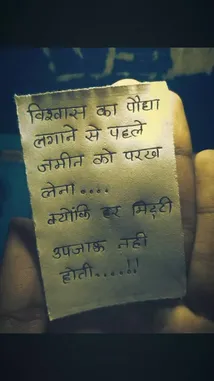 विश्वास का पौधा
लगाने से पहले
जमीन को परख
लेना....
क्योंकि हर मिट्टी
उपजाऊ नही
होती....!!